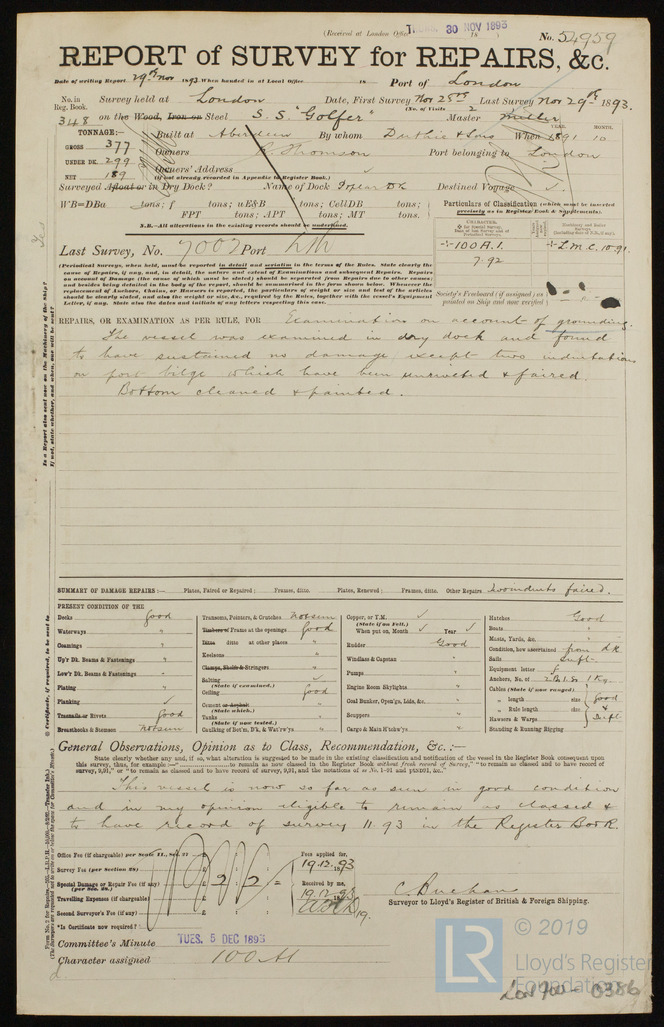 (Received at London Office THURS. 30 NOV 1893 18 )
No. 54959
REPORT of SURVEY for REPAIRS, &c.
Date of writing Report 29th Nov 1893 When handed in at Local Office 18 Port of London
No. in Reg. Book. Survey held at London Date, First Survey Nov 25th Last Survey Nov 29th 1893.
(No. of Visits 2
348 on the Wood, Iron or Steel S.S. "Golfer" Master Miller
TONNAGE:— Built at Aberdeen By whom Duthie & Sons When 1891 10
YEAR. MONTH.
GROSS 377
UNDER DK. 299
NET 189
Owners Thomson Port belonging to London
Owners' Address
(If not already recorded in Appendix to Register Book.)
Surveyed Afloat or in Dry Dock? Name of Dock Poplar DK Destined Voyage
WB=DBa tons; f tons; uE&B tons; CellDB tons;
FPT tons; APT tons; MT tons.
N.B.—All alterations in the existing records should be underlined.
Particulars of Classification (which must be inserted precisely as in Register Book & Supplements).
CHARACTER.
+100A.1.
7.92
+L.M.C. 10.91
Last Survey, No. 7002 Port Lth
(Periodical Surveys, when held, must be reported in detail and seriatim in the terms of the Rules. State clearly the
cause of Repairs, if any, and, in detail, the nature and extent of Examinations and subsequent Repairs. Repairs
on account of Damage (the cause of which must be stated) should be separated from Repairs due to other causes;
and besides being detailed in the body of the report, should be summarised in the form shown below. Whenever the
replacement of Anchors, Chains, or Hawsers is reported, the particulars of weight or size and test of the articles
should be clearly stated, and also the weight or size, &c., required by the Rules, together with the vessel's Equipment
Letter, if any. State also the dates and initials of any letters respecting this case.
Society's Freeboard (if assigned) as painted on Ship and now verified
REPAIRS, OR EXAMINATION AS PER RULE, FOR Examination on account of grounding.
The vessel was examined in dry dock and found
to have sustained no damage except two indentations
on port bilge which have been unriveted & faired.
Bottom cleaned & painted.
Is a Report also sent now on the Machinery of the Ship?
If not, state whether, and when, one will be sent?
SUMMARY OF DAMAGE REPAIRS:— Plates, Faired or Repaired; Frames, ditto. Plates, Renewed; Frames, ditto. Other Repairs Two indents faired.
PRESENT CONDITION OF THE
Decks good
Waterways "
Coamings "
Up'r Dk. Beams & Fastenings "
Low'r Dk. Beams & Fastenings "
Plating "
Planking ✓
Treenails or Rivets Good
Breasthooks & Stemson not seen
Transoms, Pointers, & Crutches not seen
Timbers or Frames at the openings good
Ditto ditto at other places "
Keelsons "
Clamps, Shelfs & Stringers "
Salting ✓
(State if examined.)
Ceiling Good
Cement or Asphalt "
(State which.)
Tanks "
(State if now tested.)
Caulking of Bot'm, D'k, & Wat'rw'ys "
Copper, or Y.M. ✓
(State if on Felt.)
When put on, Month ✓ Year ✓
Rudder Good
Windlass & Capstan "
Pumps "
Engine Room Skylights "
Coal Bunker, Open'gs, Lids, &c. "
Scuppers "
Cargo & Main H'tchw'ys "
Hatches Good
Boats "
Masts, Yards, &c. "
Condition, how ascertained from dk
Sails Suft.
Equipment letter f
Anchors, No. of 2B 1S 1Kg.
Cables (State if now ranged)
" length size Good
" Rule length size &
Hawsers & Warps Suft
Standing & Running Rigging
General Observations, Opinion as to Class, Recommendation, &c.:—
State clearly whether any and, if so, what alteration is suggested to be made in the existing classification and notification of the vessel in the Register Book consequent upon
this survey, thus, for example:—" to remain as now classed in the Register Book without fresh record of Survey," "to remain as classed and to have record of
survey, 9,91," or "to remain as classed and to have record of survey, 9,91, and the notations of s No. 1-91 and ptND91, &c."
This vessel is now so far as seen in good condition
and in my opinion eligible to remain as classed &
to have record of survey 11.93 in the Register Book.
Office Fee (if chargeable) per Scale 11., Sec. 27 £
Survey Fee (per Section 28) £
Special Damage or Repair Fee (if any) £ 2 : 2
(per Sec. 28.)
Travelling Expenses (if chargeable) £
Second Surveyor's Fee (if any) £
*Is Certificate now required?
Fees applied for,
19.12.1893
Received by me,
19.12.93
C. Buchan
Surveyor to Lloyd's Register of British & Foreign Shipping.
Committee's Minute TUES. 5 DEC 1893
Character assigned 100A1
LR
© 2019
Lloyd's Register
Foundation
Lon 700 - 0386